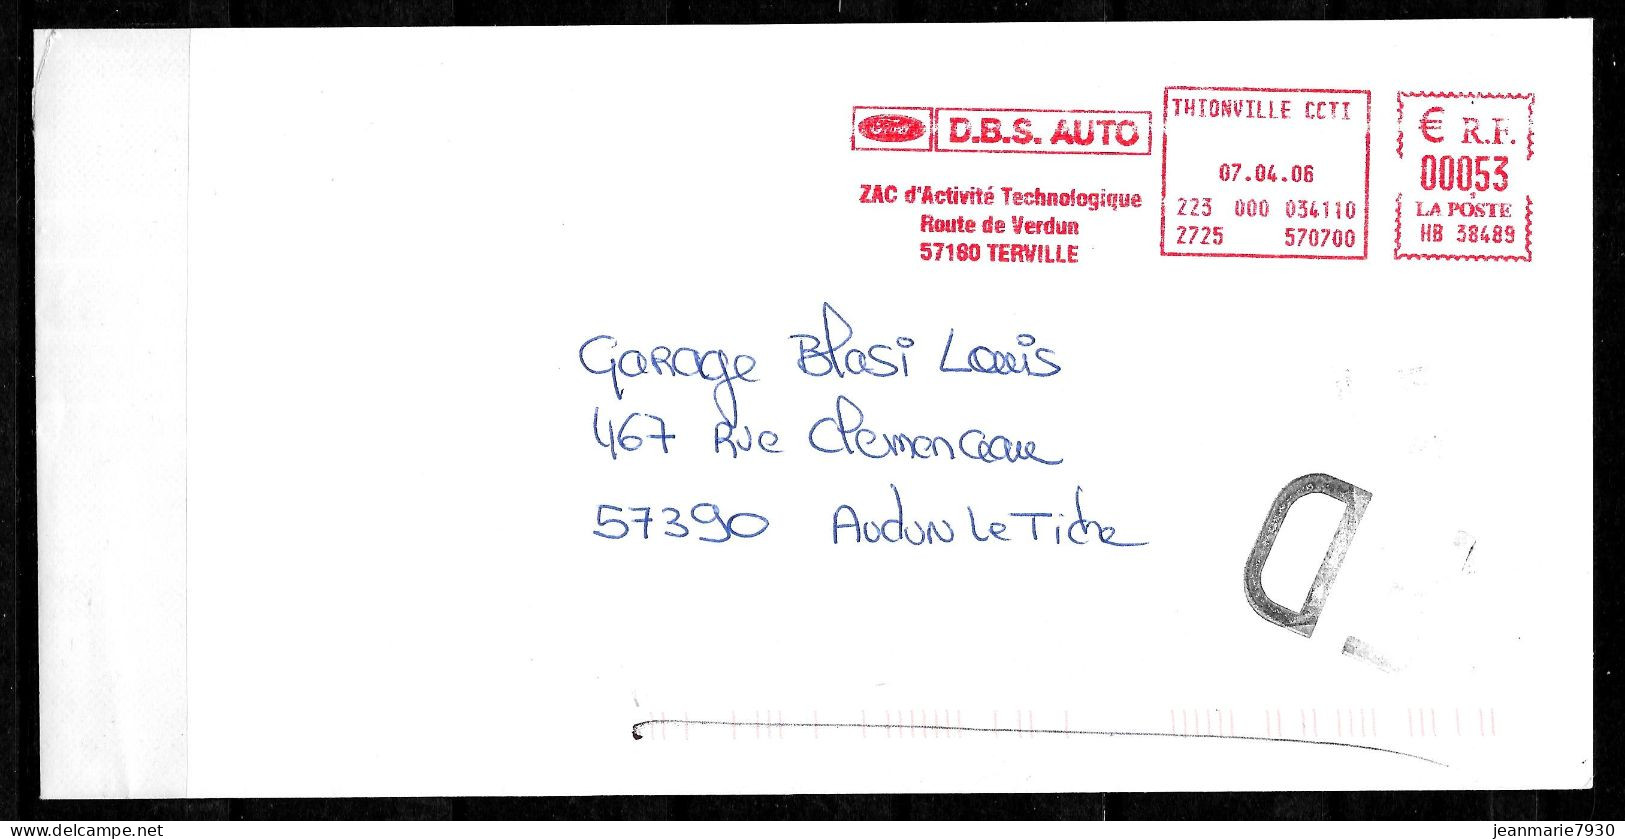 Ford D.B.S. AUTO
ZAC d'Activité Technologique
Route de Verdun
57180 TERVILLE
THIONVILLE CCTI
07.04.06
223 000 034110
2725 570700
€ R.F.
00053
LA POSTE
HB 38489
Garage Blasi Louis
467 Rue Clemenceau
57390 Audun Le Tiche
D
delcampe.net
jeanmarie7930